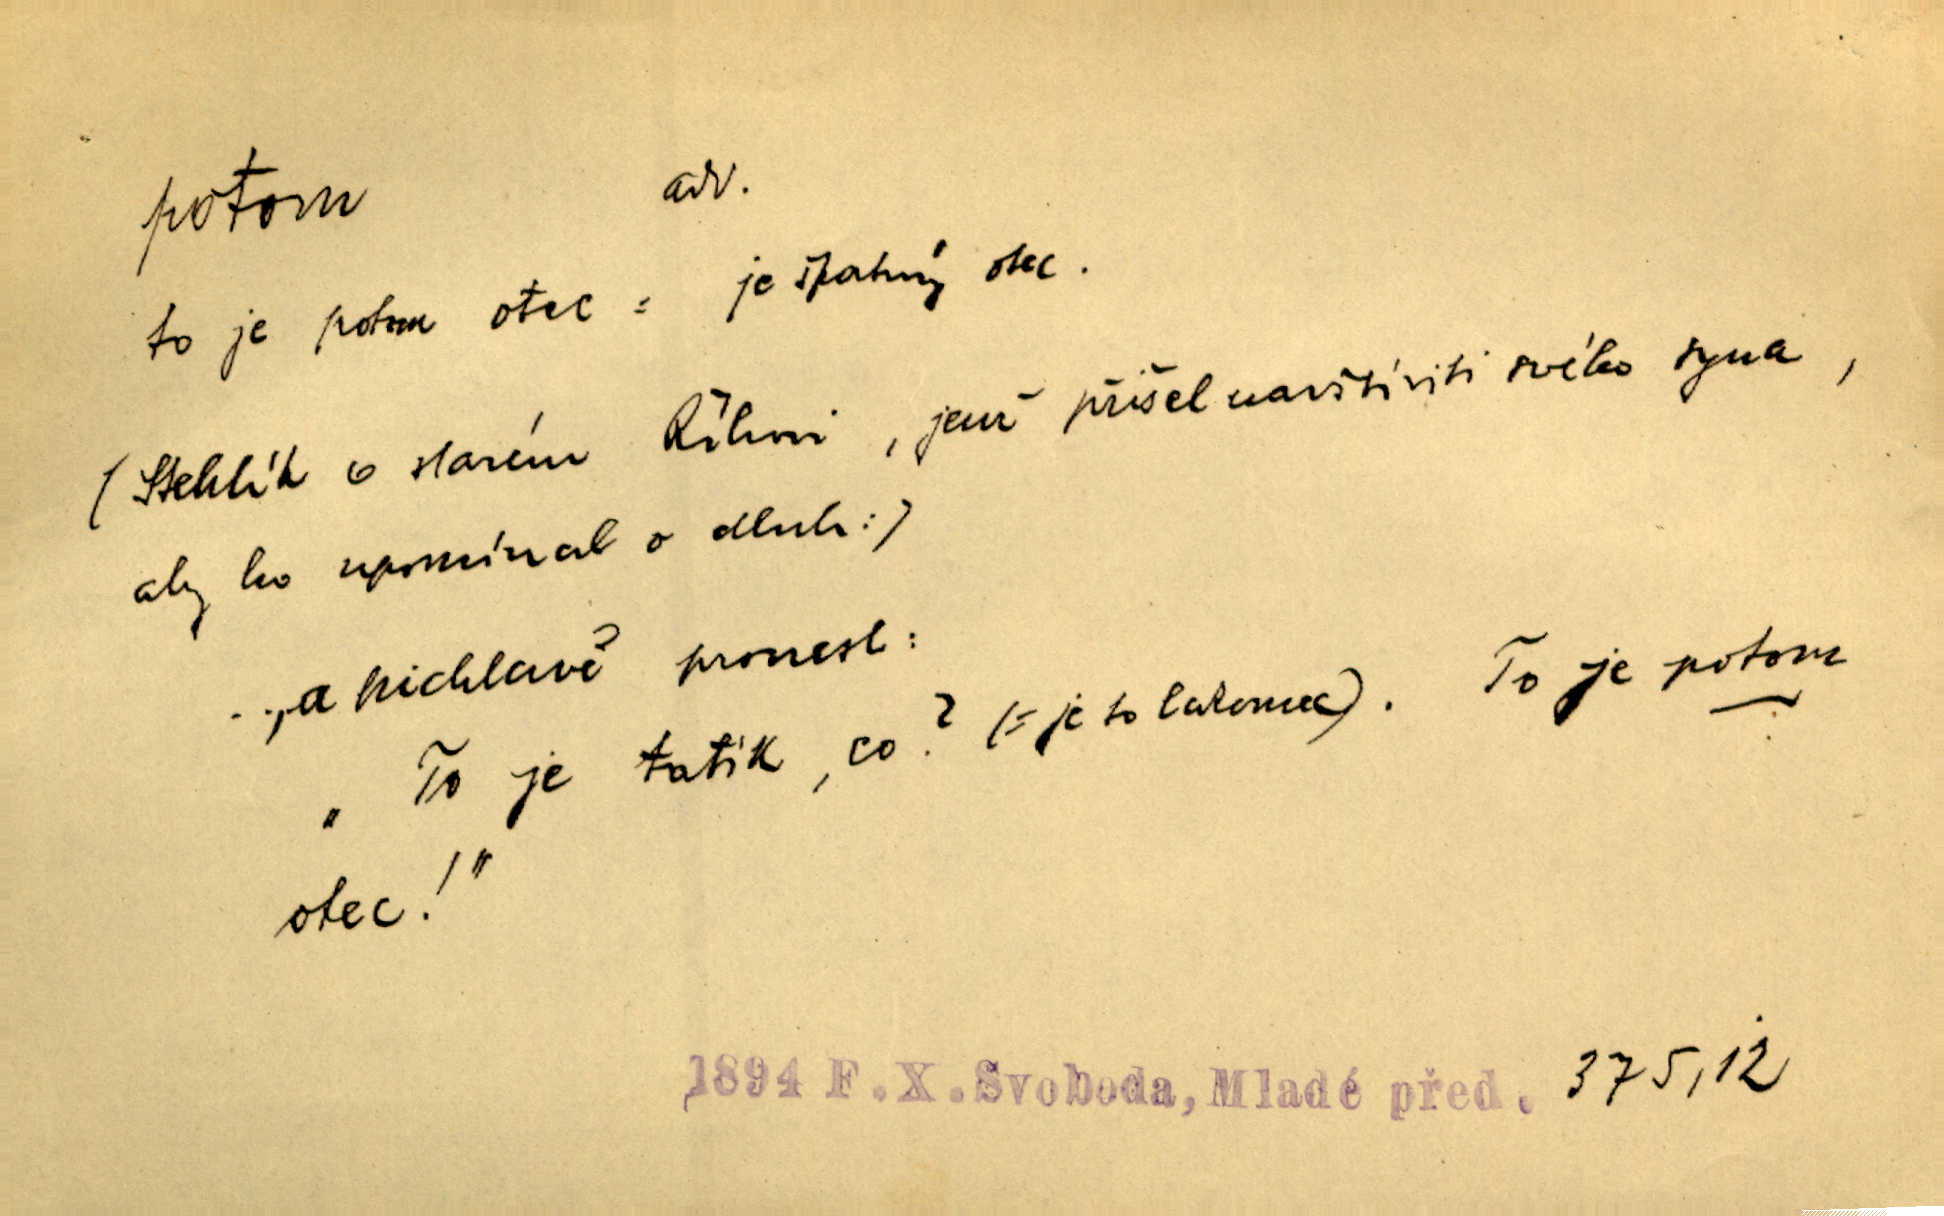 potom adv.
to je potom otec = je špatný otec.
(Stehlík o starém Říhovi, jenž přišel navštíviti svého syna,
aby ho upomínal o dluh:)
..., a pichlavě pronesl:
„To je tatík, co? (= je to lakomec). To je potom
otec!"
1894 F.X.Svoboda, Mladé před. 375,12